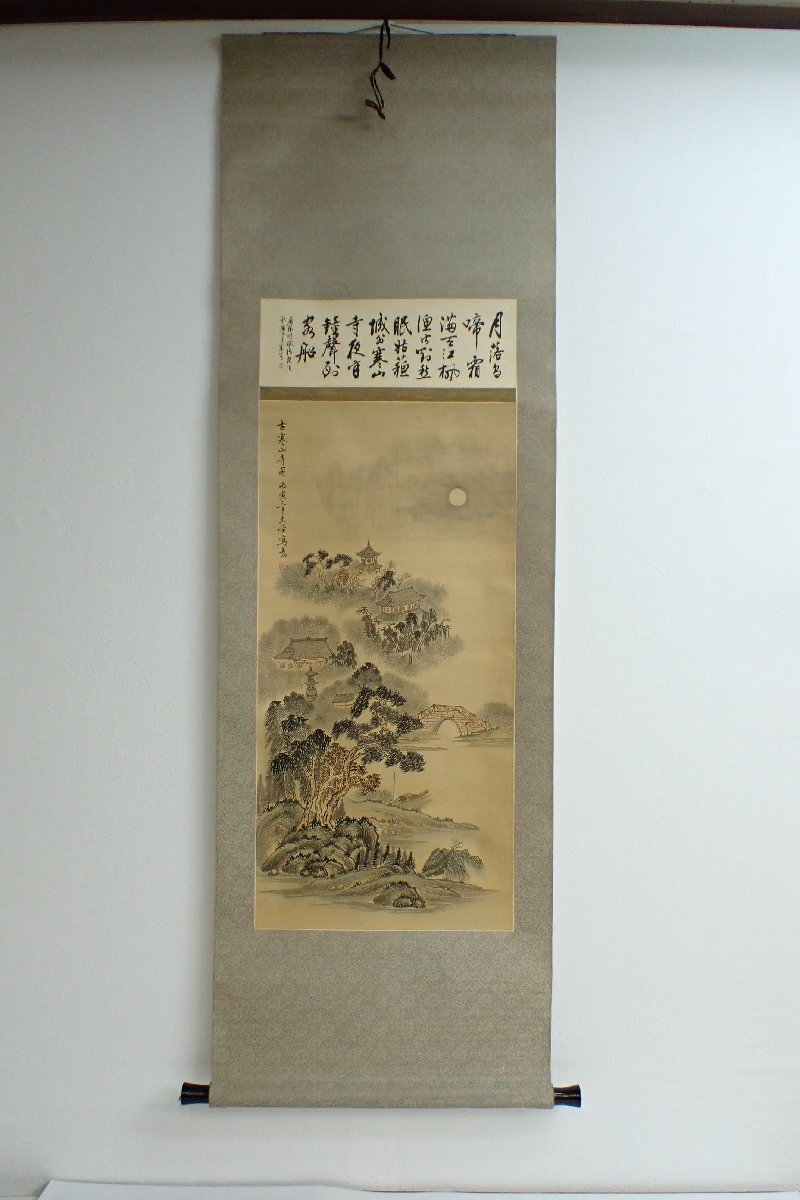 月落烏
啼霜
満天江楓
漁火對愁
眠姑蘇
城外寒山
寺夜半
鐘聲到
客船
古寒山寺図 丙寅三月